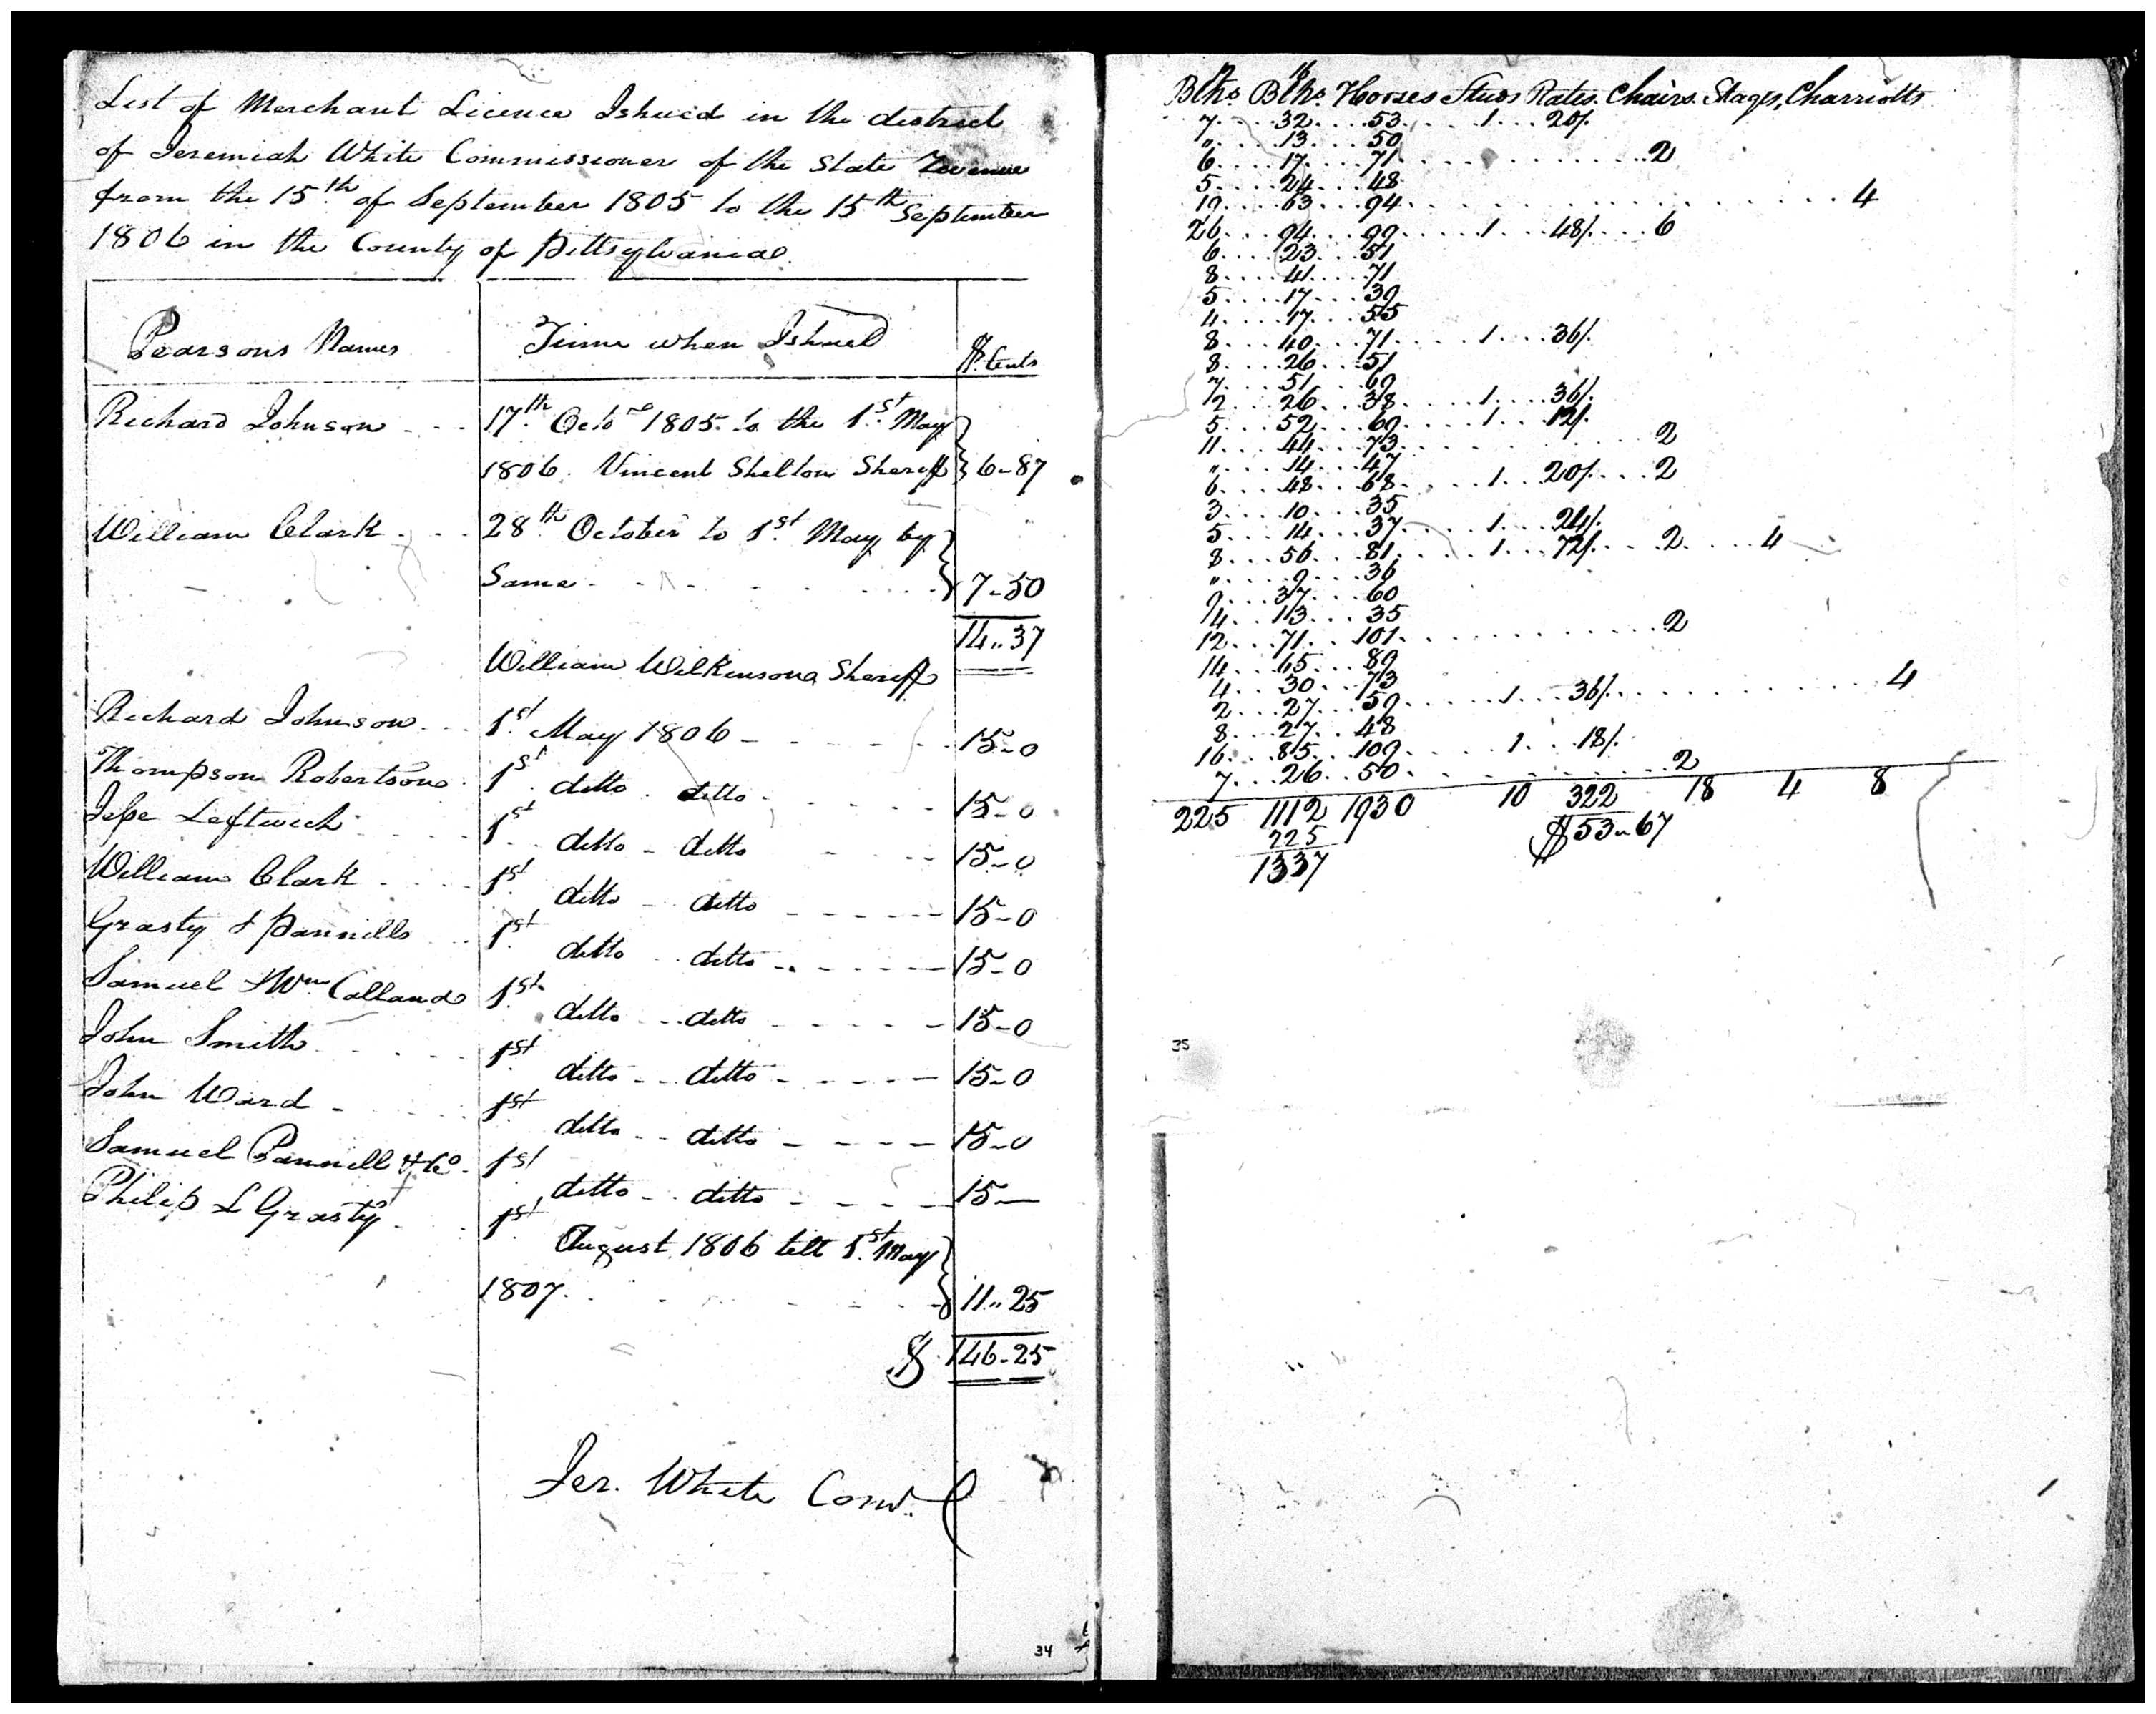 List of Merchant Licence Ishued in the district
of Jeremiah White Commissioner of the State Revenue
from the 15th of September 1805 to the 15th September
1806 in the County of Pittsylvania
Pearsons Names Time when Ishued $ Cents
Richard Johnson 17th Octo 1805 to the 1st May
1806. Vincent Shelton Sheriff 6-87
William Clark 28th October to 1st May by
Same 7-50
14..37
William Wilkinson Sheriff
Richard Johnson 1st May 1806 15-0
Thompson Robertson 1st ditto ditto 15-0
Jesse Leftwich 1st ditto ditto 15-0
William Clark 1st ditto ditto 15-0
Grasty & Pannills 1st ditto ditto 15-0
Samuel & Wm Calland 1st ditto ditto 15-0
John Smith 1st ditto ditto 15-0
John Ward 1st ditto ditto 15-0
Samuel Pannill & Co 1st ditto ditto 15-
Philip L Grasty 1st August 1806 till 1st May
1807. 11..25
$ 146-25
Jer. White Comr.
34
Blks Blks Horses Studs Rates Chairs Stages, Charriotts
7 32 53 1 20/.
" 13 50
6 17 71 2
5 24 48
19 63 94 4
26 94 99 1 48/. 6
6 23 51
8 41 71
5 17 39
4 17 55
8 40 71 1 36/.
8 26 51
7 51 69
2 26 38 1 36/.
5 52 69 1 12/.
11 44 73 2
" 14 47
6 48 68 1 20/. 2
3 10 35
5 14 37 1 24/.
8 56 81 1 72/. 2 4
" 9 36
9 37 60
4 13 35
12 71 101 2
14 65 89
4 30 73
2 27 59 1 36/. 4
8 27 48
16 85 109 1 18/.
7 26 50 2
225 1112 1930 10 322 18 4 8
225 $53-67
1337
35